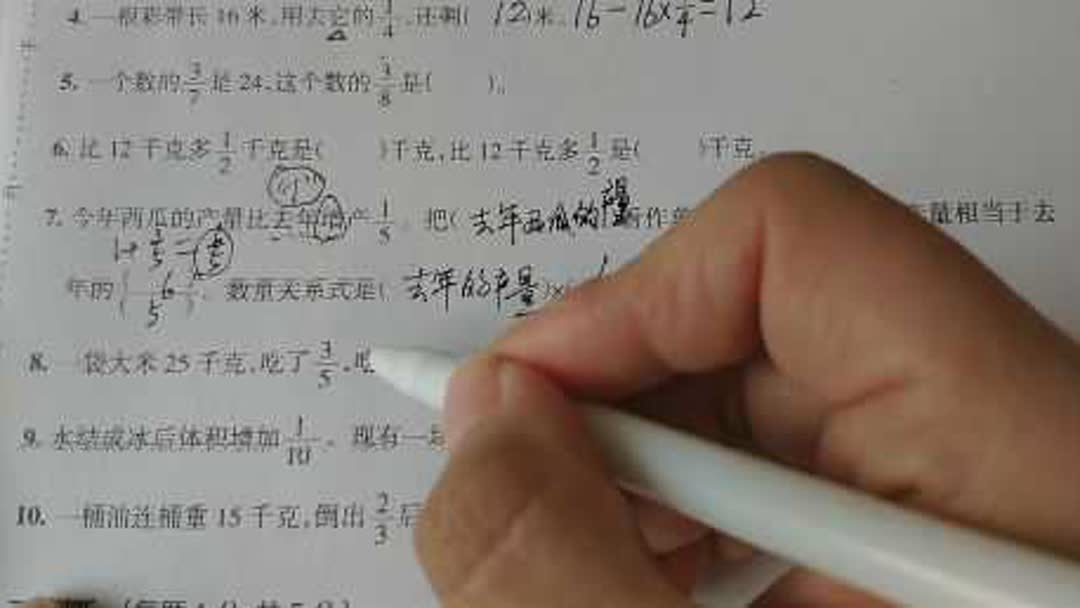 4. 一根彩带长 16 米,用去它的 1/4,还剩( 12 )米。 16-16×1/4=12
5. 一个数的 3/7 是 24,这个数的 3/8 是( )。
6. 比 12 千克多 1/2 千克是( )千克,比 12 千克多 1/2 是( )千克。
7. 今年西瓜的产量比去年增产 1/5 。 把( 去年西瓜的产量 量相当于去
1+1/5=6/5
年的( 6/5 )。 数量关系式是( 去年的产量 )×
8. 一袋大米 25 千克,吃了 3/5 ,吃
9. 水结成冰后体积增加 1/10 。 现有一
10. 一桶油连桶重 15 千克,倒出 2/3 后